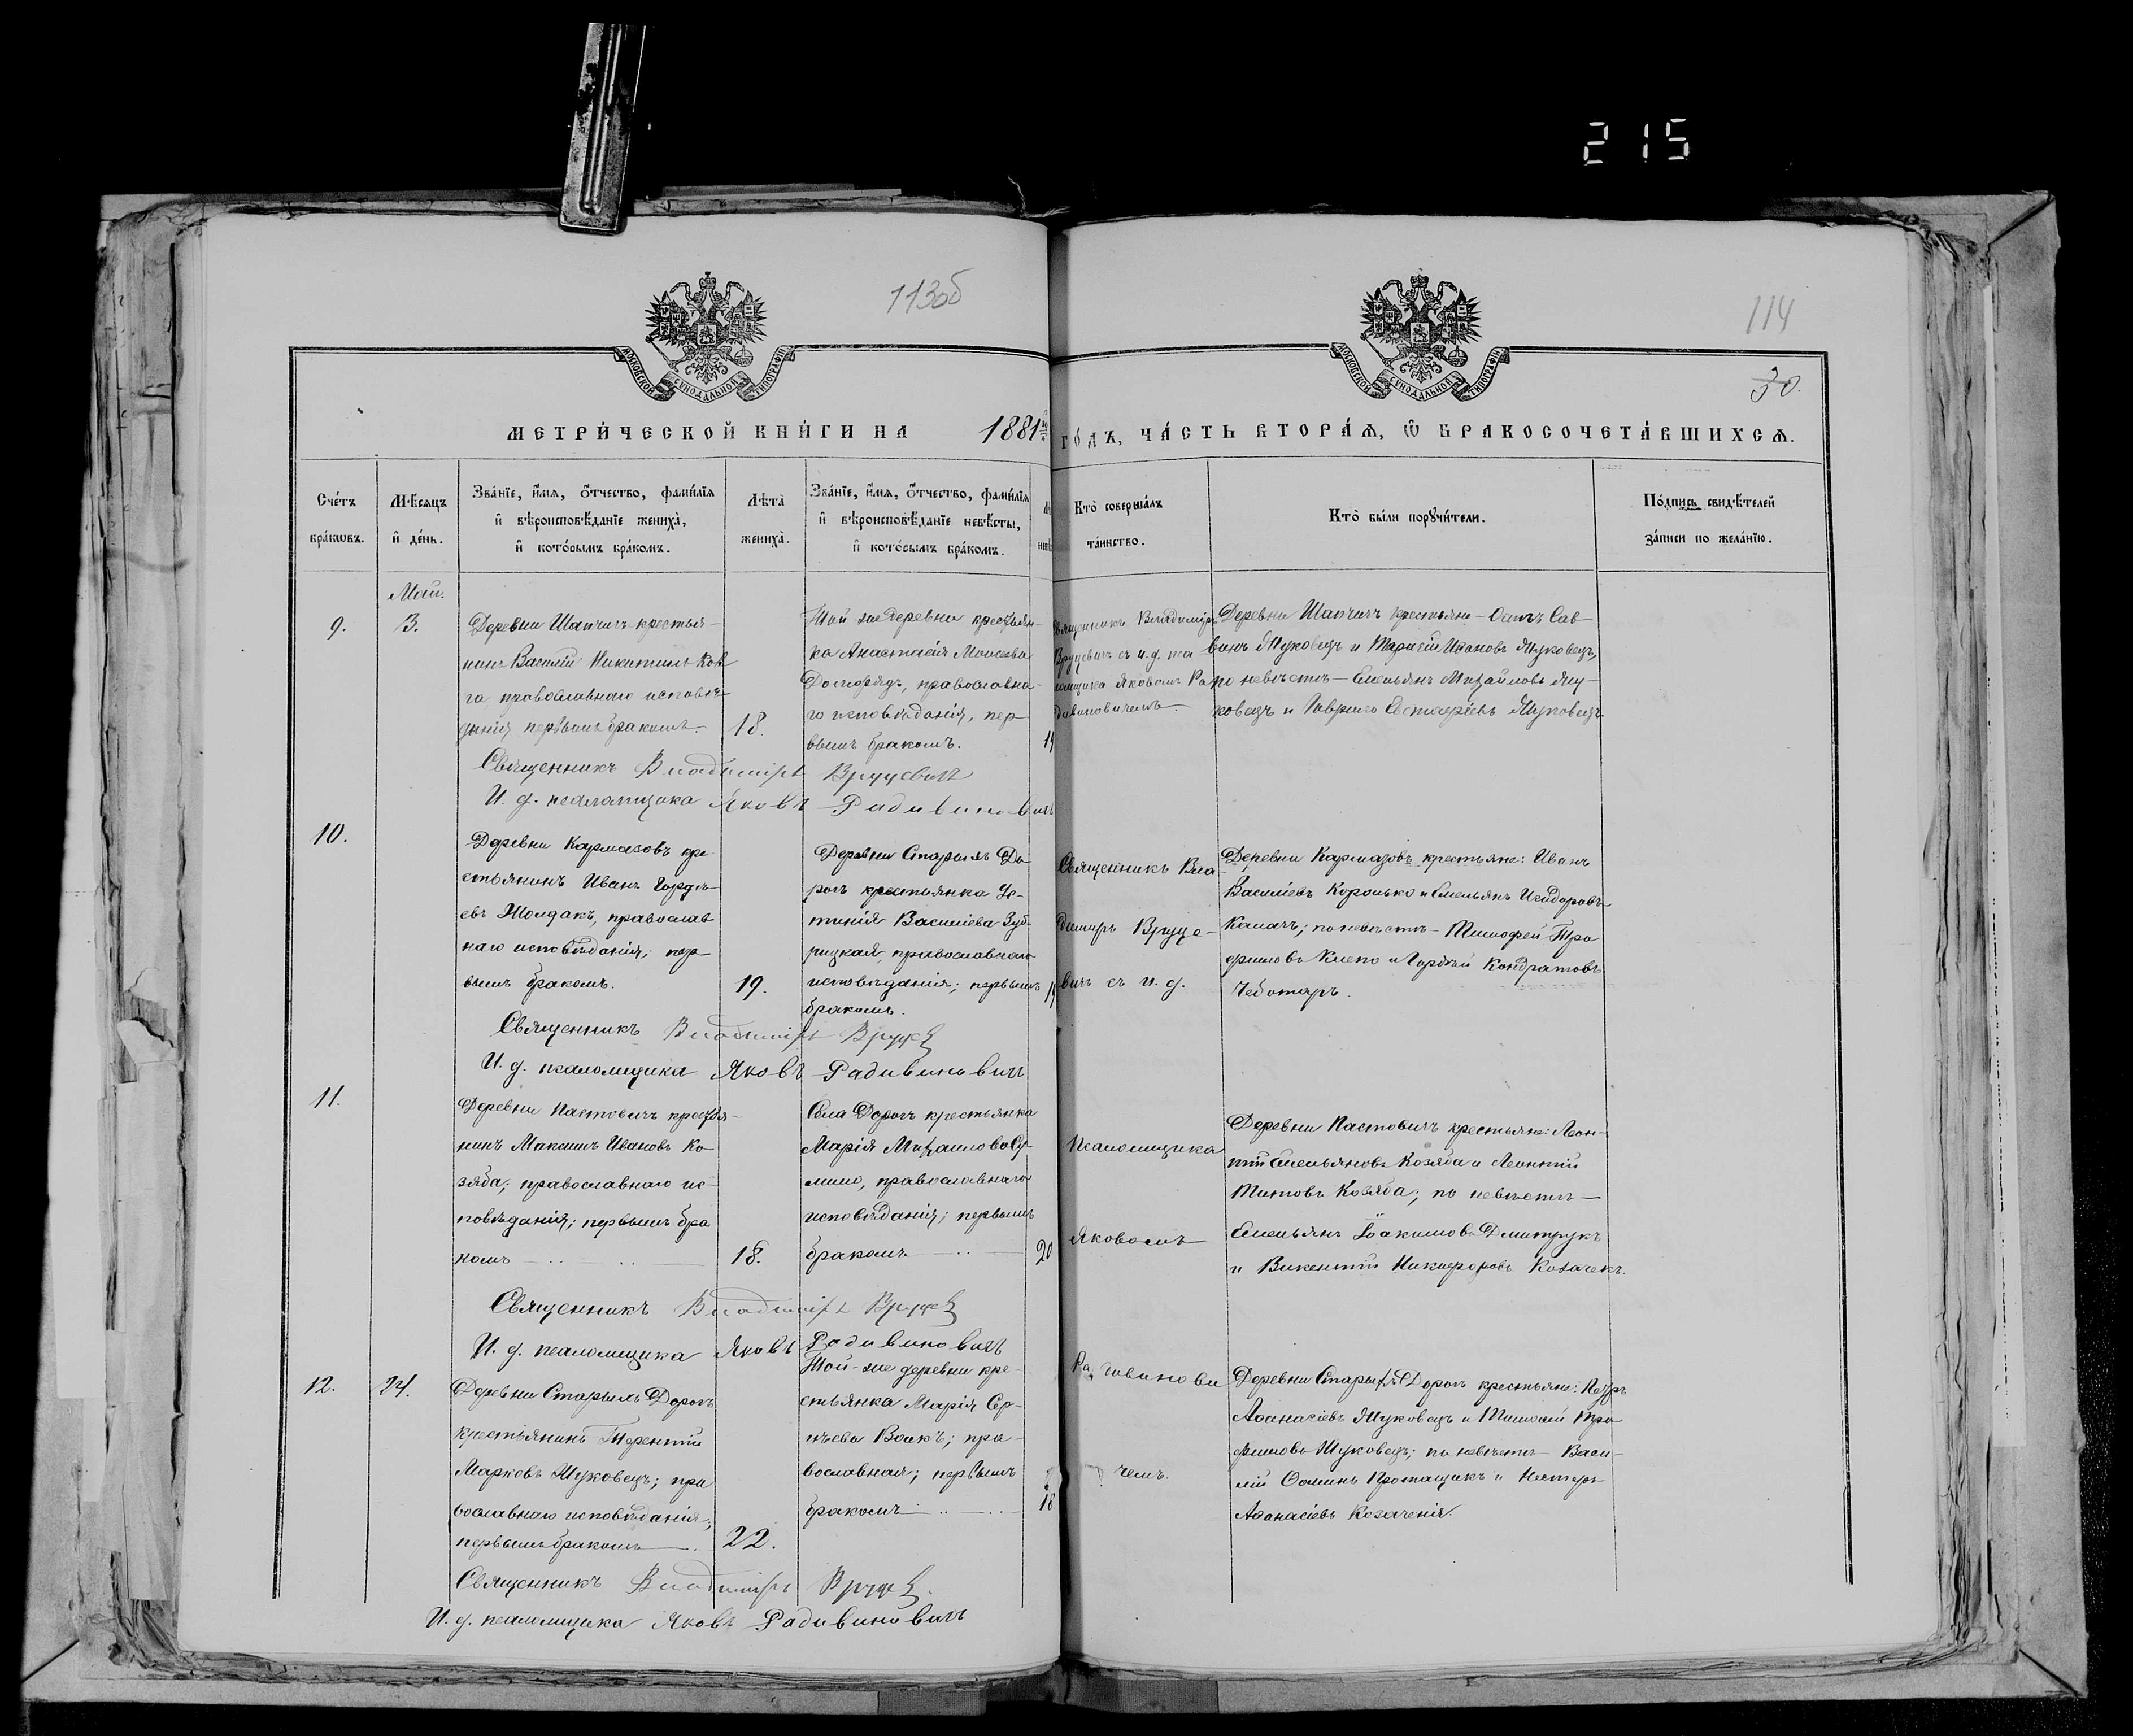 215
113об
114
МОСКОВСКОЙ СУНОДАЛЬНОЙ ТИПОГРАФІИ
МОСКОВСКОЙ СУНОДАЛЬНОЙ ТИПОГРАФІИ
30.
МЕТРИ́ЧЕСКОЙ КНИ́ГИ НА 1881й
ГО́ДЪ, ЧА́СТЬ ВТОРА́Ѧ, Ѽ БРАКОСОЧЕТА́ВШИХСѦ.
Сче́тъ
бра́кѡвъ.
Мѣ́сѧцъ
и҆ де́нь.
Зва́нїе, и҆́мѧ, ѻ҆́тчество, фами́лїѧ
и҆ вѣроисповѣ́данїе жениха̀,
и҆ кото́рымъ бра́комъ.
Лѣта̀
жениха̀.
Зва́нїе, и҆́мѧ, ѻ҆́тчество, фами́лїѧ
и҆ вѣроисповѣ́данїе невѣ́сты,
и҆ кото́рымъ бра́комъ.
Кто̀ соверша́лъ
та́инство.
Кто̀ бы́ли порꙋчи́тели.
По́дпись свидѣ́телей
за́писи по жела́нїю.
Май.
9.
3.
Деревни Шапчичъ крестья-
нинъ Василій Никитинъ Ков
га православнаго исповѣ-
данія первымъ бракомъ.
18.
Той же деревни крестьян-
ка Анастасія Моисеева
православна-
го исповѣданія, пер-
вымъ бракомъ.
19
Священникъ Владиміръ
Вруцевичъ съ и.д. пса
ломщика Яковомъ Ра
дивиновичемъ.
Деревни Шапчичъ крестьяне – Сав-
винъ Жуковецъ и Тарасій Ивановъ Жуковецъ,
по невѣстѣ – Емельянъ Михайловъ Жу-
ковецъ и Гавріилъ Евстафіевъ Жуковецъ
Священникъ Владиміръ Вруцевичъ
И. д. псаломщика Яковъ Радивиновичъ
10.
Деревни Кармазовъ кре
стьянинъ Иванъ Гордѣ-
евъ Жолдакъ, православ
наго исповѣданія; пер
вымъ бракомъ.
19.
Деревни Старыхъ До
рогъ крестьянка Ус-
тинія Василіева Зуб-
рицкая, православнаго
исповѣданія; первымъ
бракомъ.
19
Священникъ Вла
диміръ Вруце-
вичъ съ и. д.
Деревни Кармазовъ крестьяне: Иванъ
Василіевъ Королько и Емельянъ Исидоровъ
по невѣстѣ – Тимофей Тро
фимовъ и Гордѣй Кондратовъ
Чеботарь.
Священникъ Владиміръ Вруцев
И. д. псаломщика Яковъ Радивиновичъ
11.
Деревни Пастовичъ крестья-
нинъ Максимъ Ивановъ Ко-
зяба; православнаго ис-
повѣданія; первымъ бра
комъ
18.
Села Дорогъ крестьянка
Марія Михаилова Су-
православнаго
исповѣданія; первымъ
бракомъ
20
псаломщика
Яковомъ
Деревни Пастовичъ крестьяне: Леон-
тій Емельяновъ Козяба и Леонтій
Титовъ Козяба; по невѣстѣ –
Емельянъ Іоакимовъ Дмитрукъ
и Викентій Никифоровъ Козачекъ.
Священникъ Владиміръ Вруцев
И. д. псаломщика Яковъ Радивиновичъ
12.
24.
Деревни Старыхъ Дорогъ
крестьянинъ Терентій
Марковъ Жуковецъ; пра
вославнаго исповѣданія;
первымъ бракомъ
22.
Той-же деревни кре-
стьянка Марія Сер-
гѣева Волкъ; пра-
вославная; первымъ
бракомъ
18
Радивинови
чемъ.
Деревни Старыхъ Дорогъ крестьяне: Петръ
Аѳанасіевъ Жуковецъ и Тимоѳей Тро
фимовъ Жуковецъ; по невѣстѣ – Васи-
лій Ѳоминъ и Несторъ
Аѳанасіевъ
Священникъ Владиміръ Вруцев.
И. д. псаломщика Яковъ Радивиновичъ